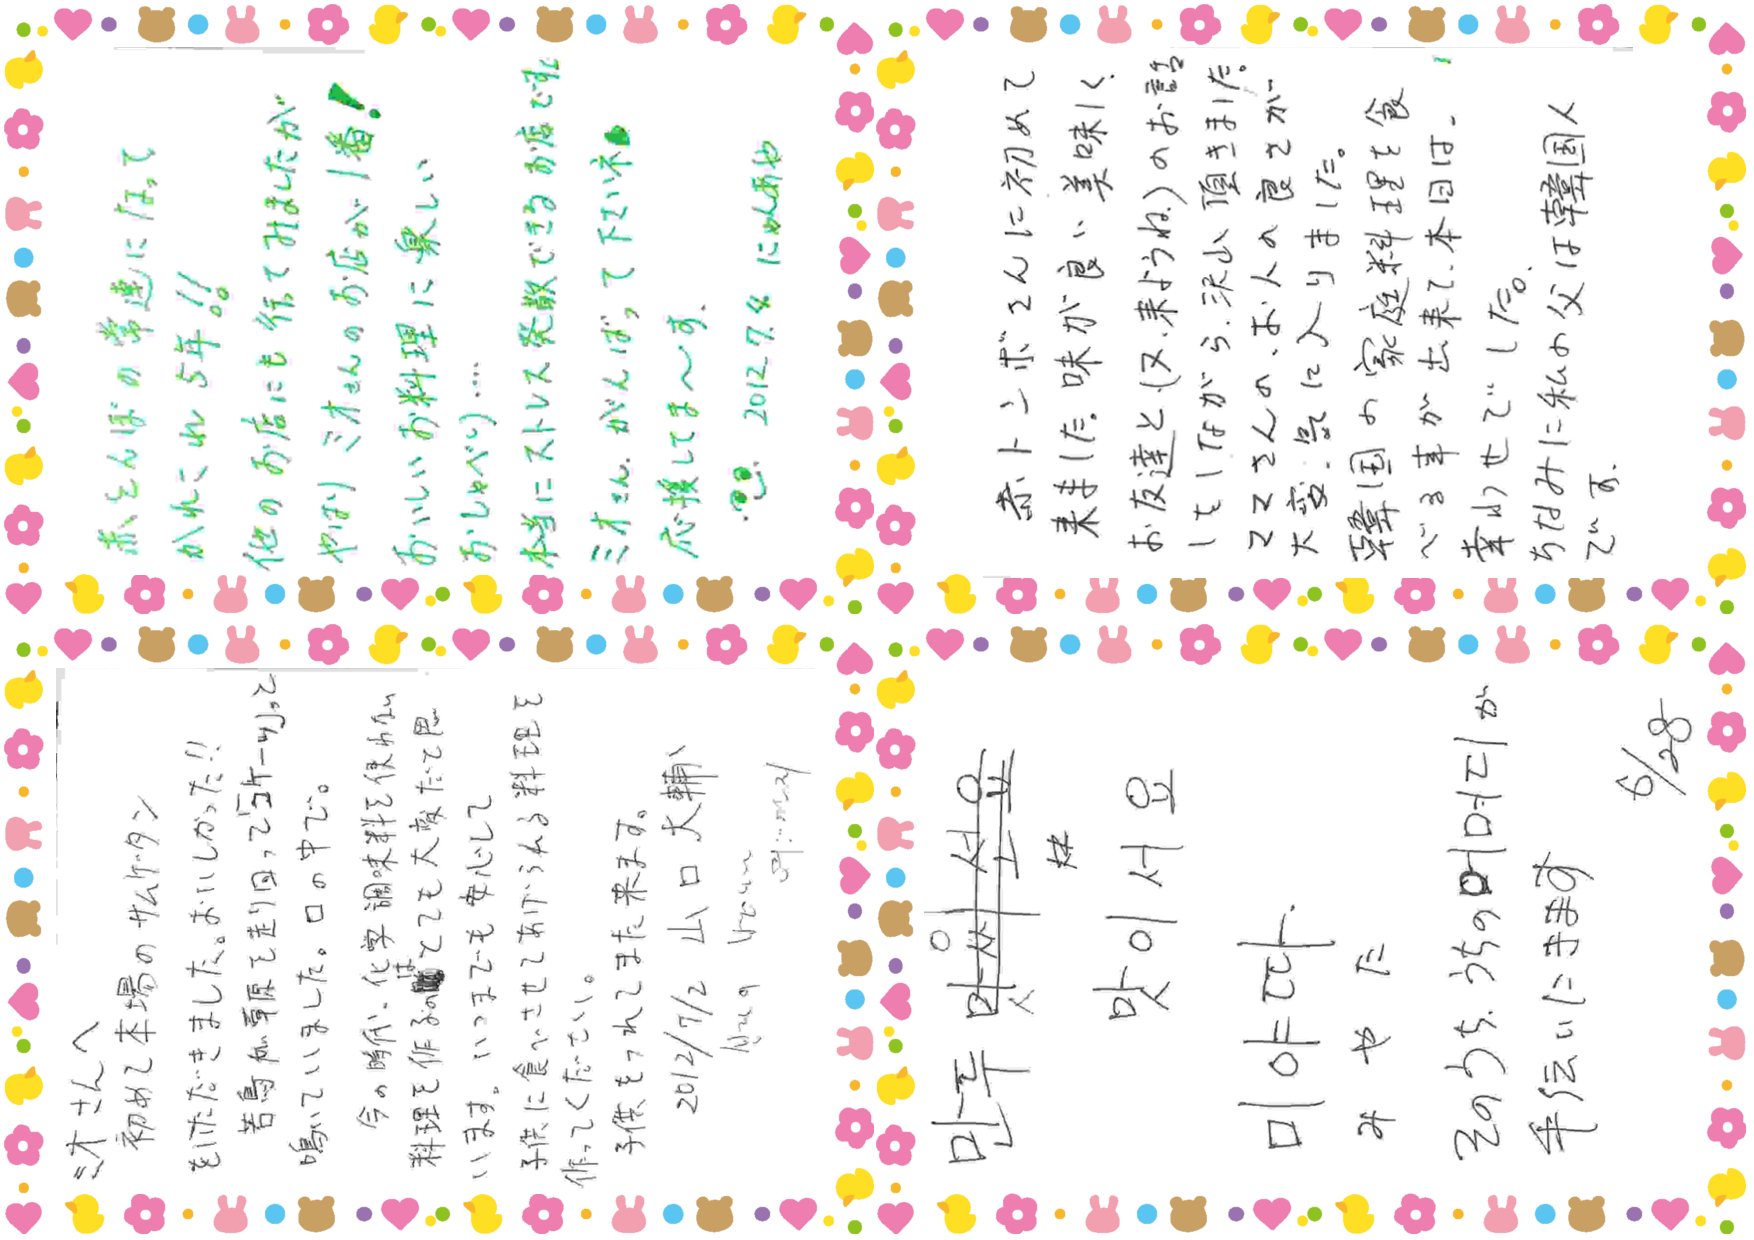 赤とんぼの常連になって
かれこれ5年!!
他のお店にも行てみましたが
やはりミオさんのお店が1番!
おいしいお料理に楽しい
おしゃべり・・・
本当にストレス発散できるお店です。
ミオさん、がんばって下さいネ
応援してま〜す。
2012.7.4 にゃんあや
赤トンボさんに初めて
来ました。味が良い美味しく、
お友達と(又、来ようね)のお話
しをしながら、沢山頂きました。
ママさんの、お人の良さが、
大変、気に入りました。
韓国の家庭料理を食
べる事が出来て、本日は、
幸わせでした。
ちなみに私の父は韓国人
です。
ミオさんへ
初めて本場のサムゲタン
をいただきました。おいしかった!!
若鳥が草原を走り回ってコケーッって
鳴いていました。口の中で。
今の時代、化学調味料を使わない
料理を作るのはとても大変だと思
います。いつまでも安心して
子供に食べさせてあげられる料理を
作ってください。
子供をつれてまた来ます。
2012/7/2 山口大輔
만두
맛이서요
미야따.
みやた
そのうち、うちの어머디が
手伝いにきます
6/28